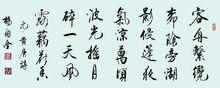 客舟繫纜
柳陰旁湖
影侵蓬夜
氣涼萬頃
波光搖月
碎一天風
露藕花香
元黄庚詩
楊